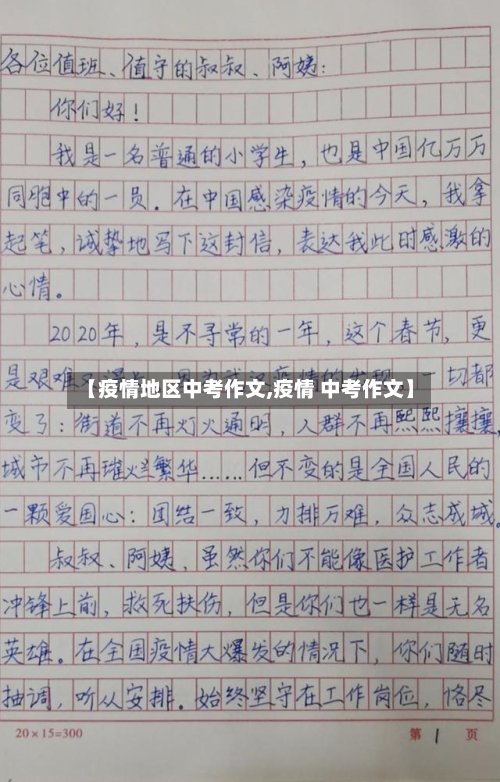 各位值班、值守的叔叔、阿姨：
你们好！
我是一名普通的小学生，也是中国亿万万
同胞中的一员。在中国感染疫情的今天，我拿
起笔，诚挚地写下这封信，表达我此时感激的
心情。
2020年，是不寻常的一年，这个春节，更
是艰难 一切都
【疫情地区中考作文,疫情 中考作文】
变了：街道不再灯火通明，人群不再熙熙攘攘，
城市不再璀烂繁华……但不变的是全国人民的
一颗爱国心：团结一致，力排万难，众志成城。
叔叔、阿姨，虽然你们不能像医护工作者
冲锋上前，救死扶伤，但是你们也一样是无名
英雄。在全国疫情大爆发的情况下，你们随时
抽调，听从安排。始终坚守在工作岗位，恪尽
20×15=300 第 1 页